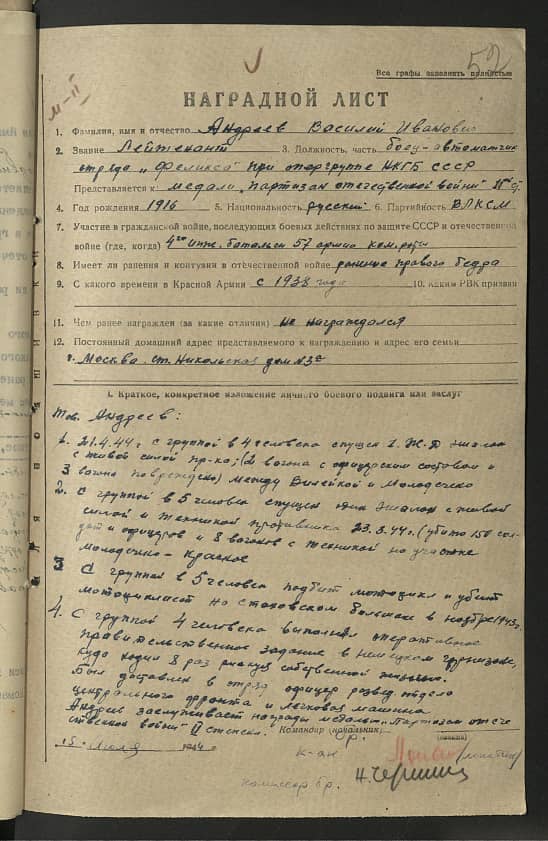 52
Все графы заполнить полностью
М-II
НАГРАДНОЙ ЛИСТ
1. Фамилия, имя и отчество Андреев Василий Иванович
2. Звание Лейтенант 3. Должность, часть боец-автоматчик
отряда „Феликса" при опергруппе НКГБ СССР
Представляется к медали „Партизан отечественной войны" II ст.
4. Год рождения 1916 5. Национальность русский 6. Партийность ВЛКСМ
7. Участие в гражданской войне, последующих боевых действиях по защите СССР и отечественной
войне (где, когда) 4го батальон 57 армии ком. роты
8. Имеет ли ранения и контузии в отечественной войне ранение правого бедра
9. С какого времени в Красной Армии с 1938 года 10. Каким РВК призван
11. Чем ранее награжден (за какие отличия) не награждался
12. Постоянный домашний адрес представляемого к награждению и адрес его семьи
г. Москва Никольская дом №3а
Для подшивки
I. Краткое, конкретное изложение личного боевого подвига или заслуг
Тов. Андреев:
1. 21.4.44 г с группой в 4 человека спущен 1 Ж.Д эшалон
с живой силой пр-ка; (2 вагона с офицерским составом и
3 вагона повреждено) между Вилейкой и Молодечно
2. С группой в 5 человек спущен один эшалон с живой
силой и техникой противника 23.3.44 г. (убито 150 сол-
дат и офицеров и 8 вагонов с техникой на участке
Молодечно - Красное
3 С группой в 5 человек подбит мотоцикл и убит
мотоциклист на большаке в ноябре 1943 г.
4. С группой 4 человека выполнял оперативное
правительственное задание в немецком гарнизоне,
куда ходил 8 раз рискуя собственной жизнью.
Был доставлен в отряд офицер развед отдела
центрального фронта и легковая машина
Андреев заслуживает награды медалью „Партизан отече
ственной войны" II степени.
Командир (начальник) бр.
5 июля 1944 г.
к-ан
комиссар бр.